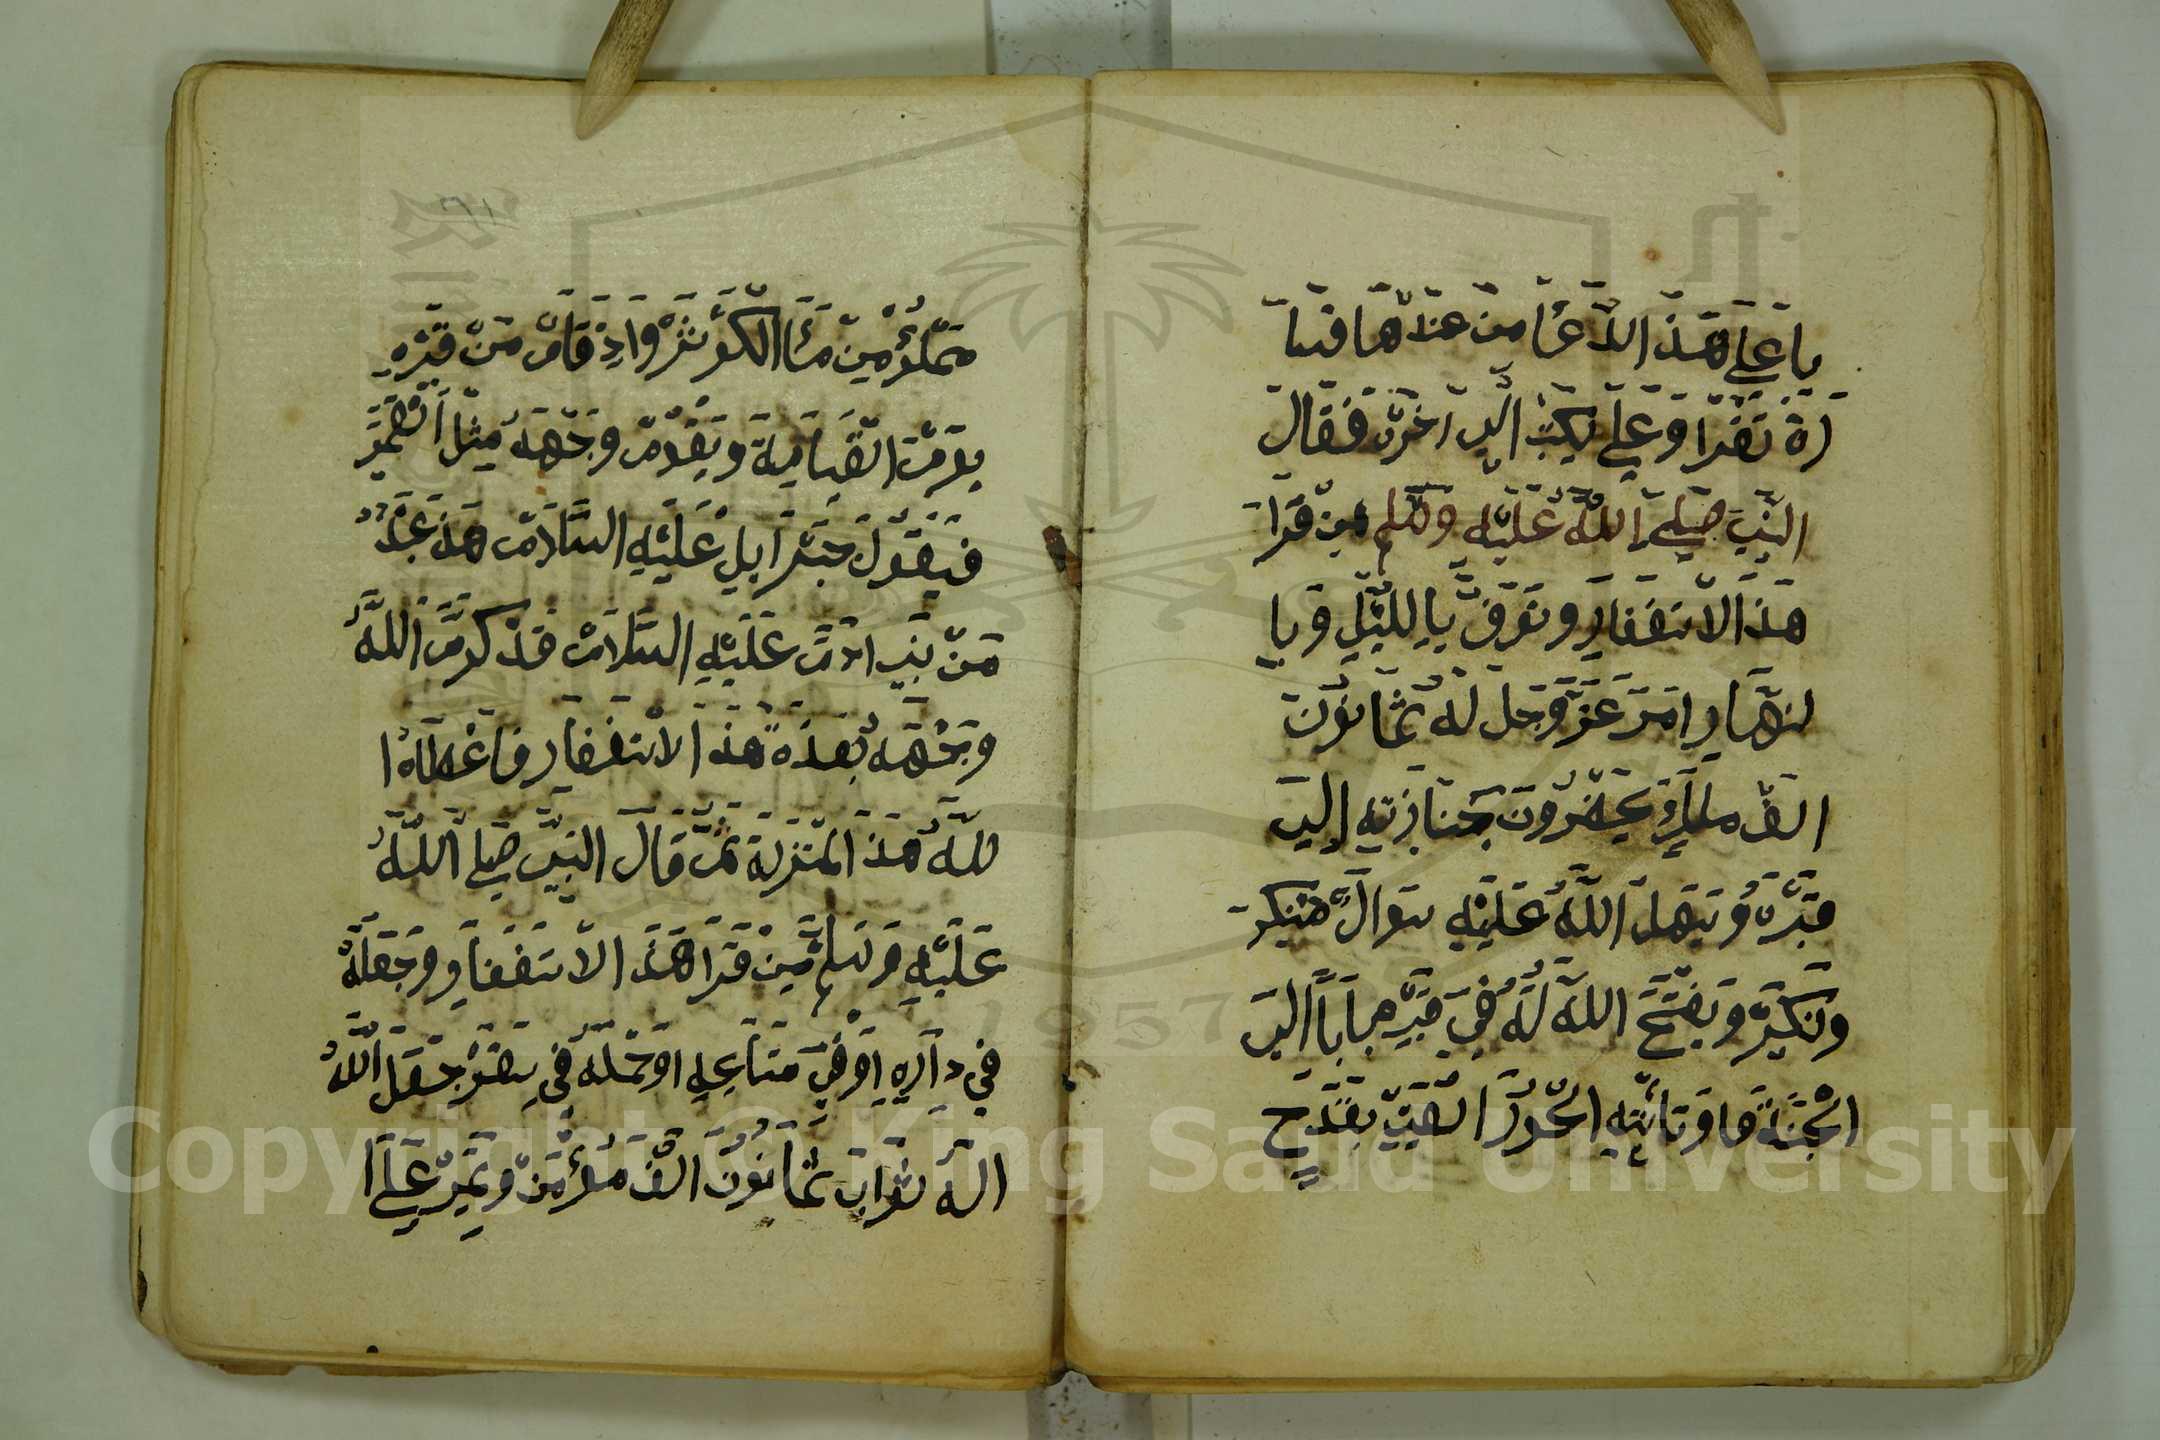 يا علي هذا الدعا من عندها فتا
رة تقرا وعلي يكتب الي اخره فقال
النبي صلي الله عليه وسلم من قرا
هذ الاستغفار وتوفي باليل و با
لنهار امر عز وجل له ثمانون
الف ملك يحضرون جنازته إلي
قبره و يسهل الله عليه سوال منكر
ونكير و يفتح الله له في قبره باباً الي
الجنة و تاتيه الحور العين بقدح
مملؤ من ماء الكوثر واذ قام من قبره
يوم القيامة ويقدم وجهه مثل القمر
فيقول جبرايل عليه السلام هذ عبد
من بني ادم عليه السلام قد كرم الله
وجهه بهذه هذ الاستغفار فاعطاه ا
لله هذ المنزلة ثم قال النبي صلي الله
عليه وسلم من قرا هذ الاستغفار وجعله
في داره او في متاعه او حمله في سفر جعل الله
اله ثواب ثمانون الف مؤمن ويمر علي ا
Copyright © King Saud University
1957